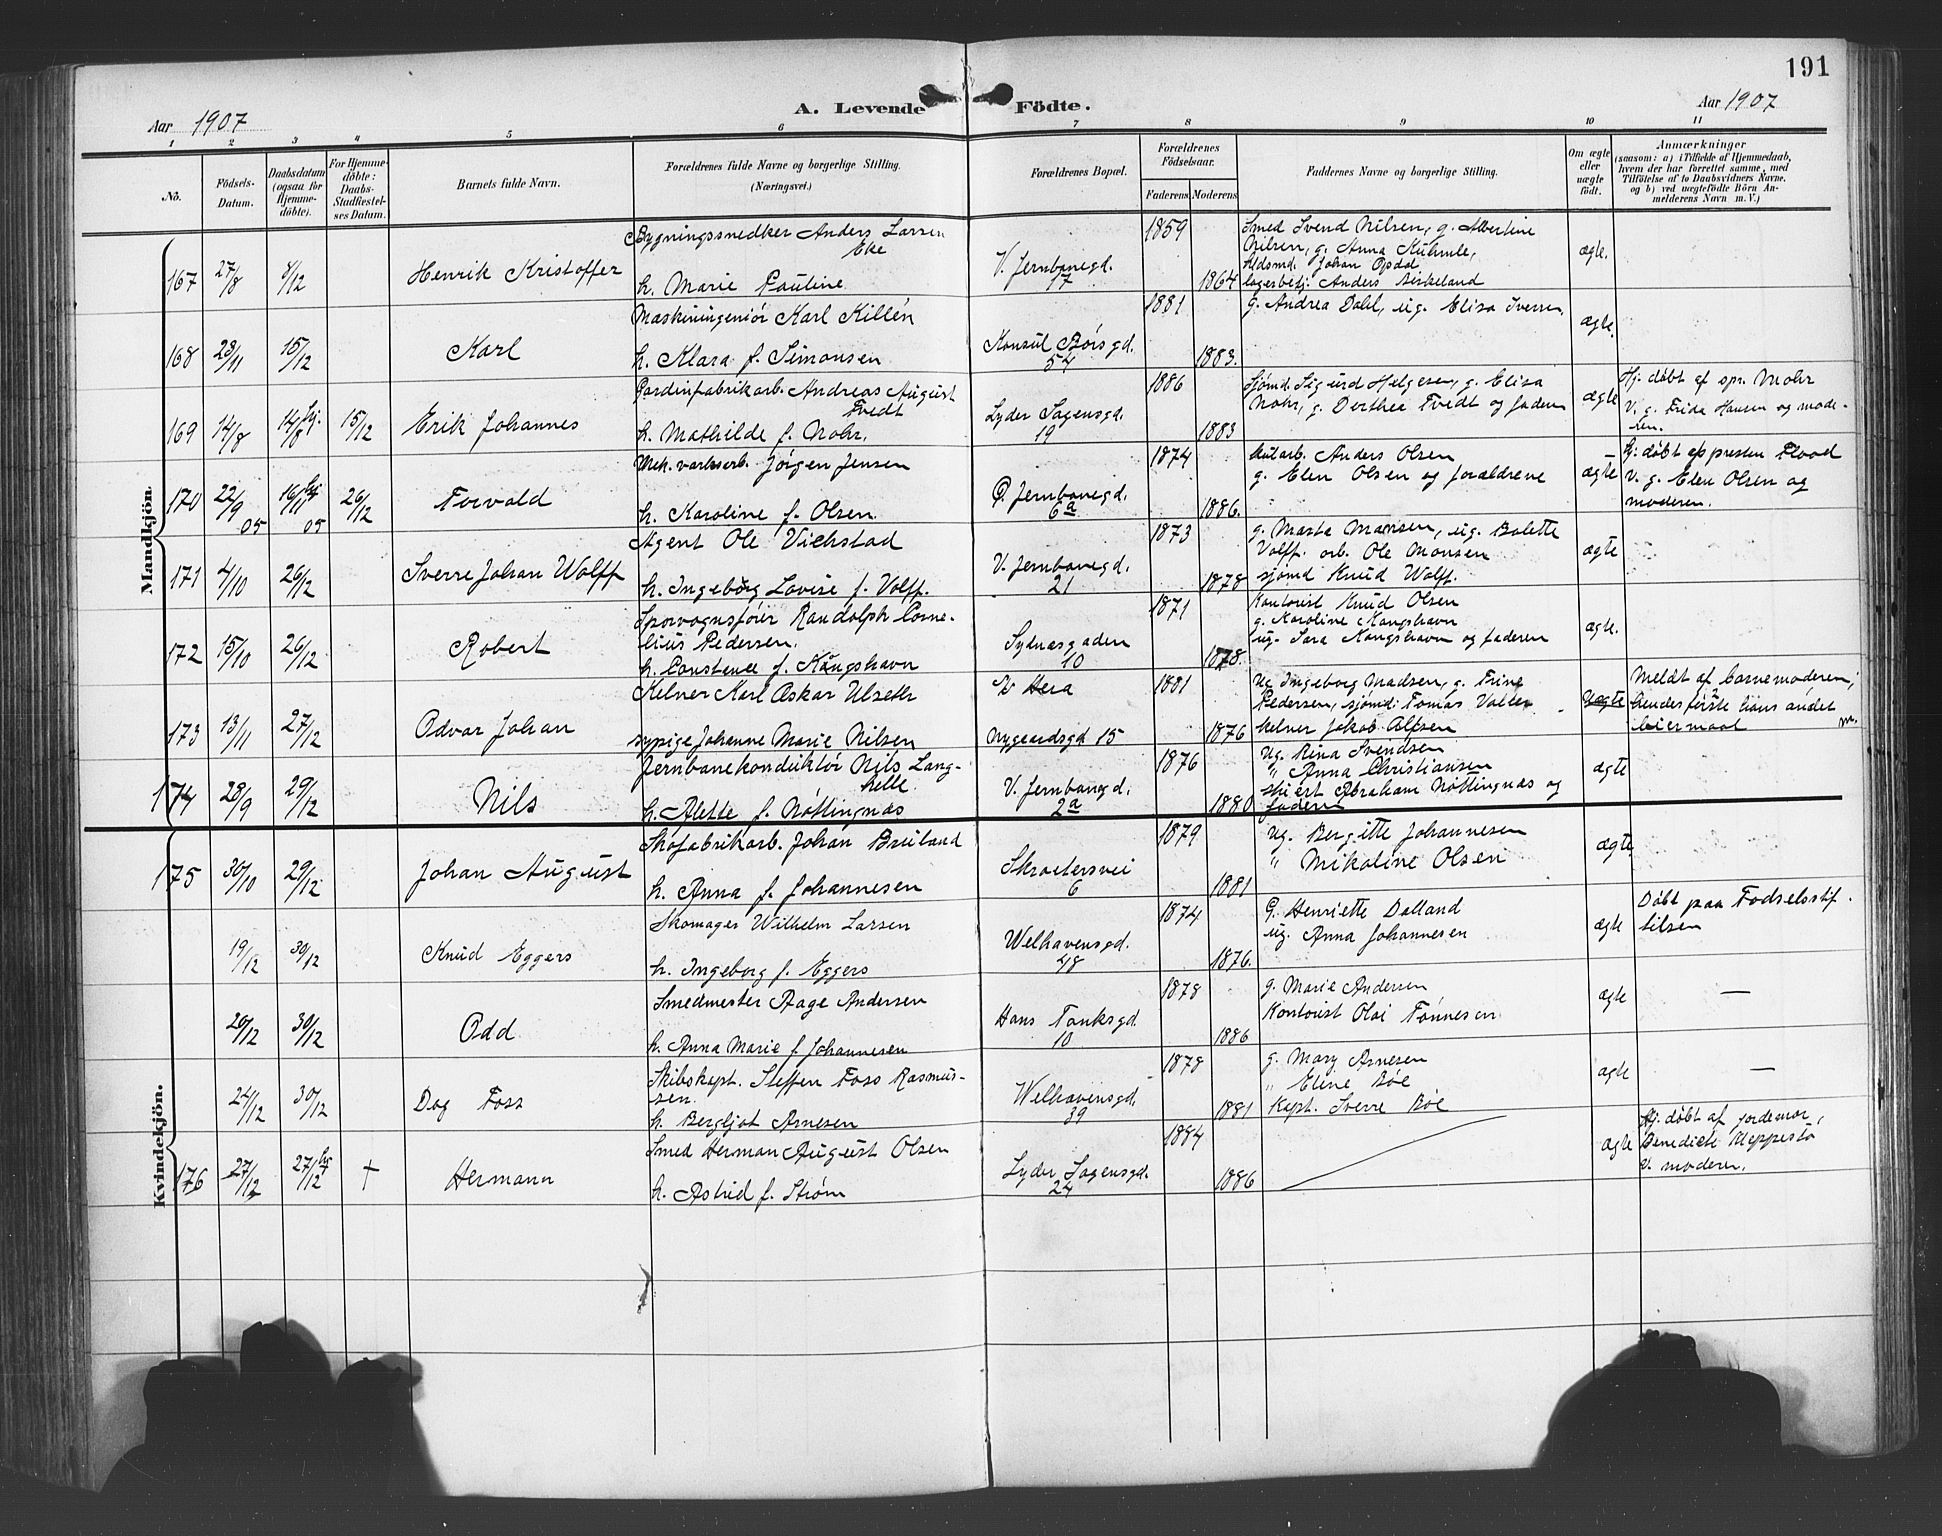 191
A. Levende Födte.
Aar 1907
Aar 1907
1 2 3 4 5 6 7 8 9 10 11
No.
Födsels-Datum.
Daabsdatum (ogsaa for Hjemme-döbte).
For Hjemme-döbte: Daabs-Stadfæstel-ses Datum.
Barnets fulde Navn.
Forældrenes fulde Navne og borgerlige Stilling.
(Næringsvei.)
Forældrenes Bopæl.
Forældrenes Födselsaar.
Faderens Moderens
Faddernes Navne og borgerlige Stilling.
Om ægte eller uægte födt.
Anmærkninger
(saasom: a) i Tilfælde af Hjemmedaab,
hvem der har forrettet samme, med
Tilföielse af to Daabsvidners Navne.
og b) ved uægtefödte Börn An-
melderens Navn m. V.)
Mandkjön.
167 27/8 8/12 Henrik Kristoffer
Bygningssnedker Anders Larsen
Eke
h. Marie Pauline
V. Jernbanegd.
17
1859
1864
Smed Svend Nilsen, g. Albertine
Nilsen, g. Anna Kuhnle,
Johan Opdal
Anders Birkeland
ægte.
168 23/11 15/12 Karl
Maskiningeniör Karl Killén
h. Klara f. Simonsen
Konsul Börsgd.
54
1881
1883.
g. Andrea Dahl, ug. Elisa Iversen
ægte.
169 14/8 14/8 hj. 15/12 Erik Johannes
Gardinfabrikarb. Andreas August
Tvedt
h. Mathilde f. Mohr.
Lyder Sagensgd.
19
1886
1883
Sjömd. Sigurd Helgesen, g. Elisa
Mohr, g. Dorthea Tvedt og faderen
ægte
Hj. döbt af spr. Mohr
V. g. Frida Hansen og mode-
ren.
170 22/9 05 16/11 hj. 05 26/12 Torvald
Mek. verksarb. Jörgen Jensen
h. Karoline f. Olsen.
Ö. Jernbanegd.
6a
1874
1886.
Anders Olsen
g. Elen Olsen og forældrene
ægte
hj. döbt af presten Flood
V. g. Elen Olsen og
moderen.
171 4/10 26/12 Sverre Johan Wolff
Agent Ole Vichstad
h. Ingeborg Lovise f. Wolff.
V. Jernbanegd.
21
1873
1878
g. Marta Monsen, ug. Bolette
Wolff. arb. Ole Monsen
sjömd Knud Wolff.
ægte
172 15/10 26/12 Robert
Sporvognsförer Randolph Corne-
lius Pedersen.
h. Constance f. Kongshavn
Sydnæsgaden
10
1871
1878.
Kontorist Knud Olsen
g. Karoline Kongshavn
ug. Sara Kongshavn og faderen
ægte.
173 13/11 27/12 Odvar Johan
Kelner Karl Oskar Ulseth
sypige Johanne Marie Nilsen
Hera
Nygaardsgd 15
1881
1876
ug Ingeborg Madsen, g. Trine
Pedersen, sjömd: Tomas
Kelner Jakob Alfsen
Uægte
Meldt af barnemoderen;
hendes förste hans andet
leiermaal
174 28/9 29/12 Nils
Jernbanekonduktör Nils Lang-
helle
h. Alette f. Nöttingnæs
V. Jernbanegd.
2a
1876
1880
ug. Rina Svendsen
" Anna Christiansen
Abraham Nöttingnæs og
faderen
ægte
175 30/10 29/12 Johan August
Skofabrikarb. Johan Breiland
h. Anna f. Johannesen
Skroetersvei
6
1879
1881
ug. Bergitte Johannesen
" Mikaline Olsen
ægte.
19/12 30/12 Knud Eggers
Skomager Wilhelm Larsen
h. Ingeborg f. Eggers
Welhavensgd.
48
1874
1876.
g. Henriette Dalland
ug. Anna Johannesen
ægte
Döbt paa Fodselsstif-
telsen
20/12 30/12 Odd
Smedmester Aage Andersen
h. Anna Marie f. Johannesen
Hans Tanksgd.
10
1878
1886
g. Marie Andersen
Kontorist Olai Tönnesen
ægte
—
Kvindekjön.
24/12 30/12 Dag Foss
Skibskapt. Steffen Foss Rasmus-
sen.
h. Bergljot Arnesen
Welhavensgd.
39
1878
1881
g. Mary Arnesen
" Eline Böe
Kapt. Sverre Böe
ægte
—
176 27/12 27/12 hj † Hermann
Smed Herman August Olsen
h. Astrid f. Ström
Lyder Sagensgd.
24
1884
1886
ægte
Hj. döbt af jordemor
Benedicte Kleppestö
V. moderen.